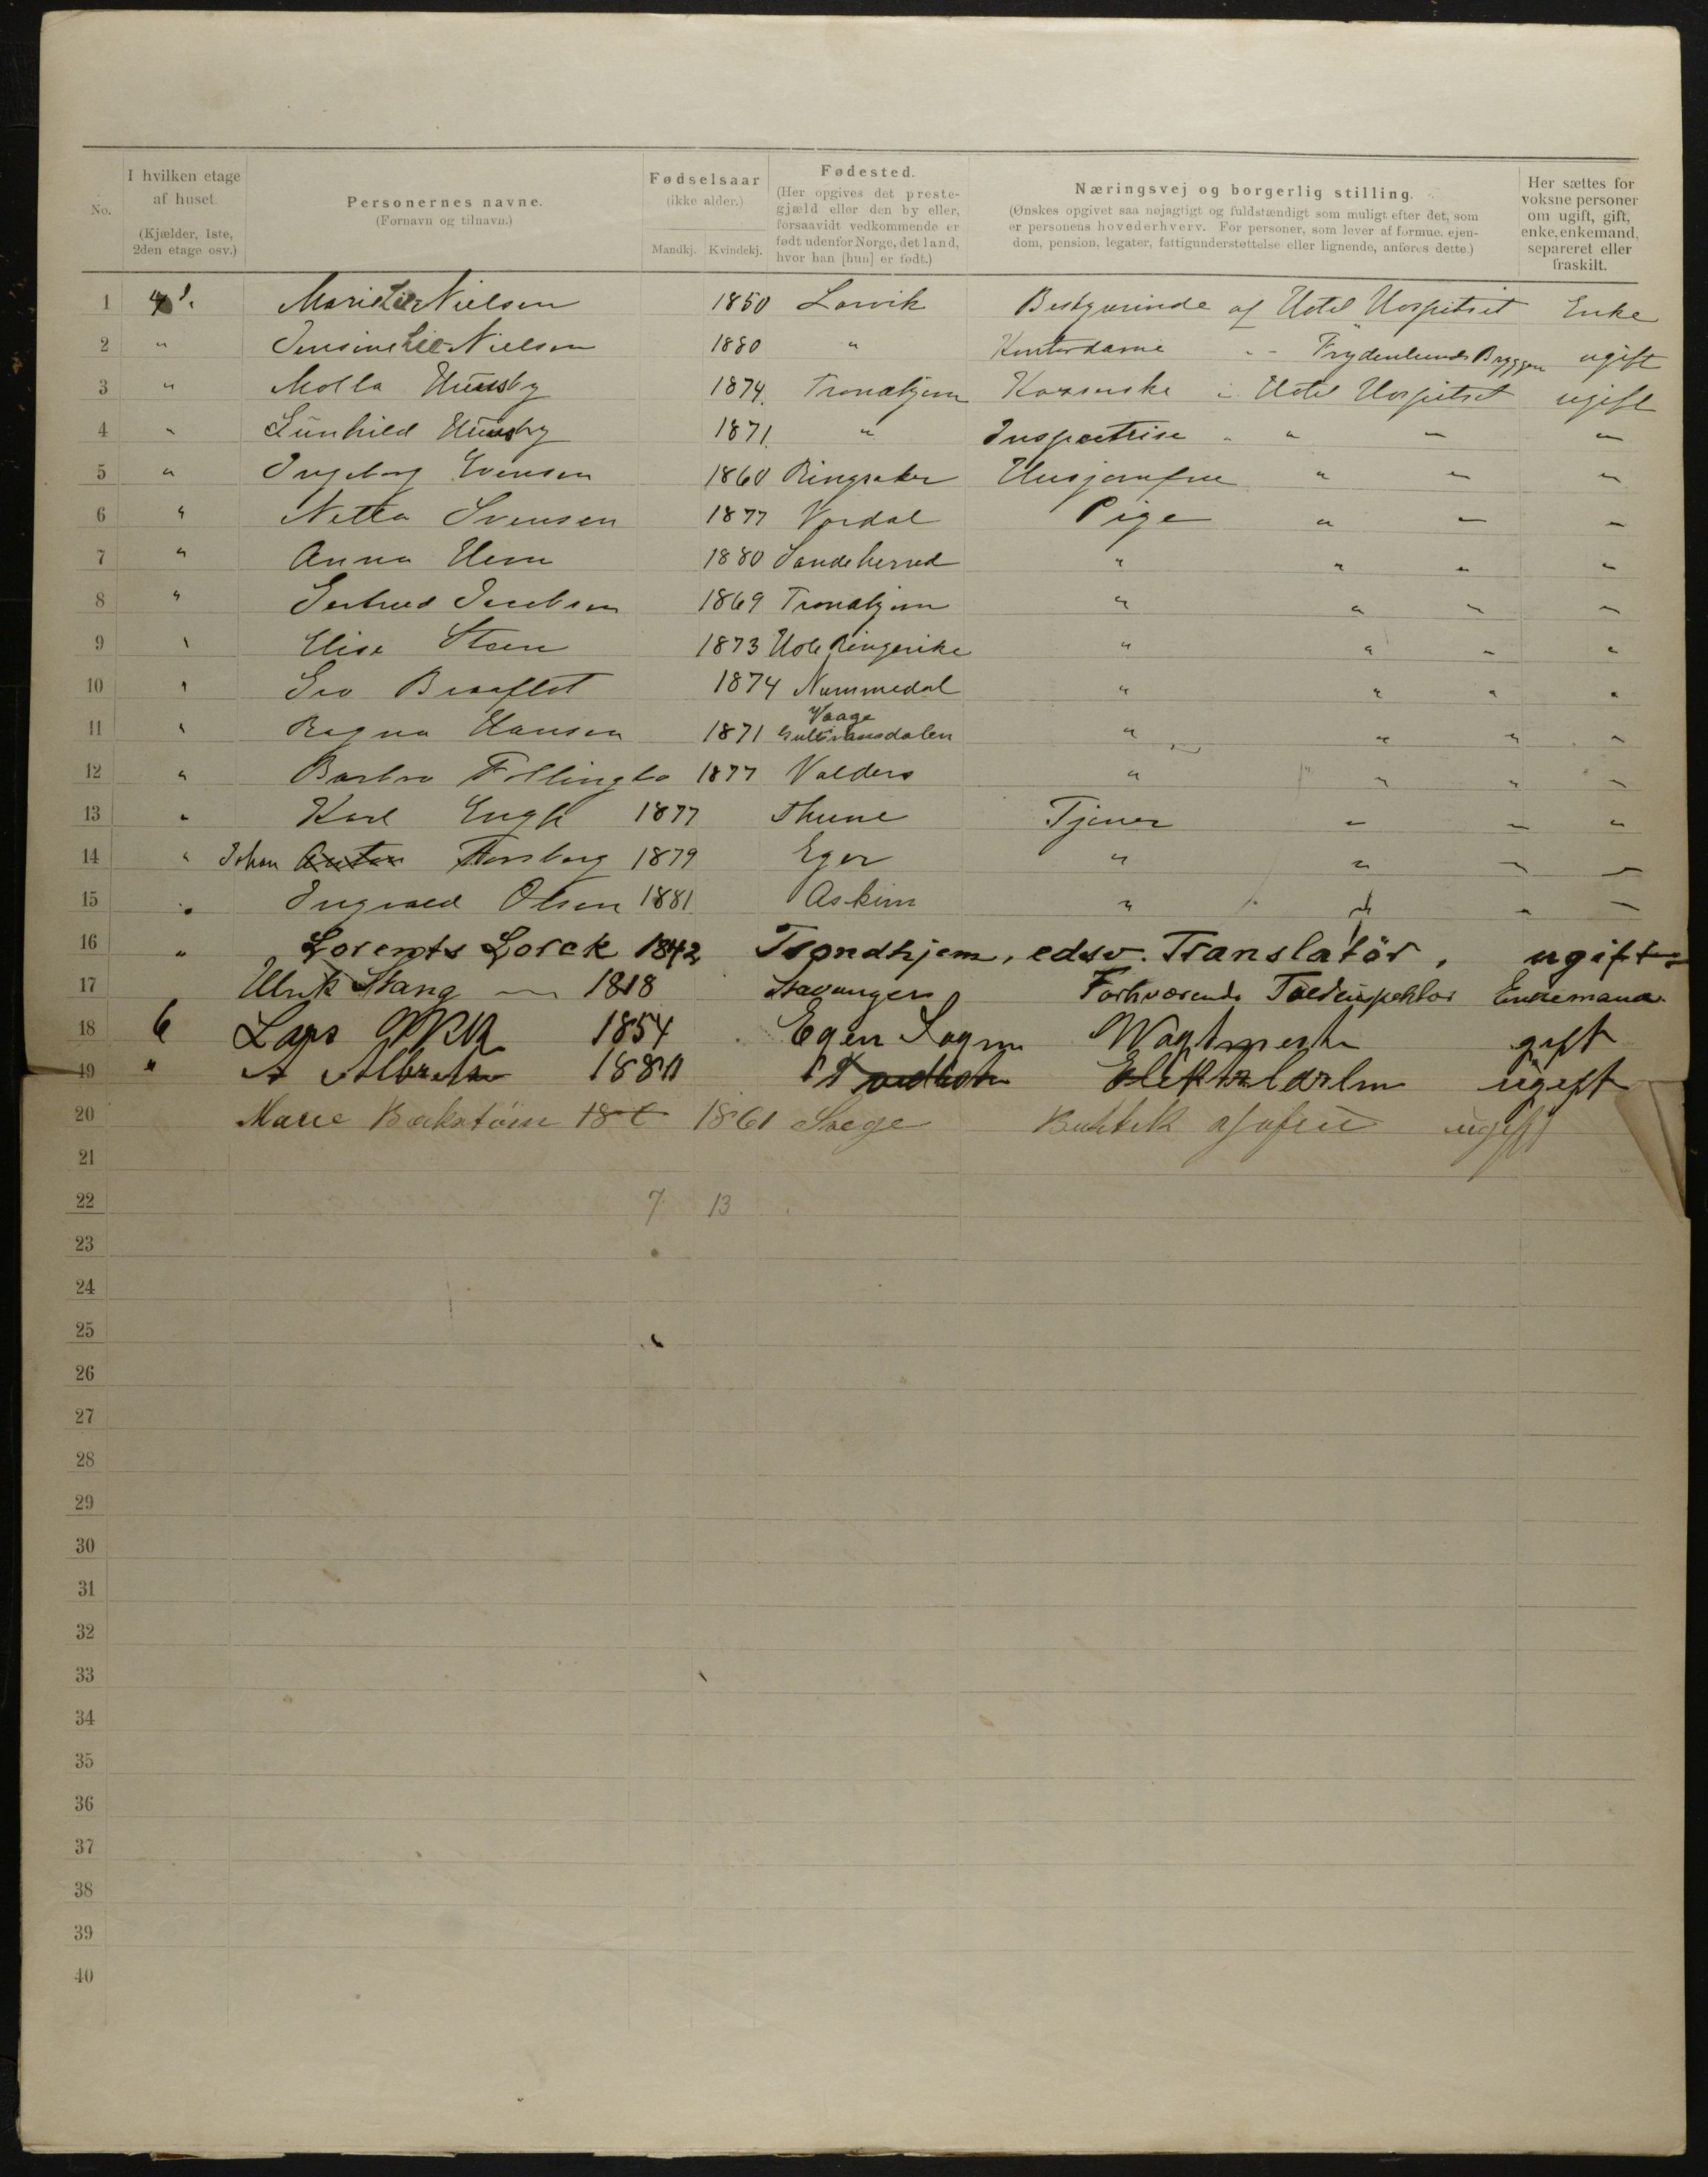 No.
I hvilken etage af huset.
(Kjælder, 1ste, 2den etage osv.)
Personernes navne.
(Fornavn og tilnavn.)
Fødselsaar
(ikke alder.)
Mandkj. Kvindekj.
Fødested.
(Her opgives det preste-
gjæld eller den by eller,
forsaavidt vedkommende er
født udenfor Norge, det land,
hvor han [hun] er født.)
Næringsvej og borgerlig stilling.
(Ønskes opgivet saa nøjagtigt og fuldstændigt som muligt efter det, som
er personens hovederhverv. For personer, som lever af formue, ejen-
dom, pension, legater, fattigunderstøttelse eller lignende, anføres dette.)
Her sættes for
voksne personer
om ugift, gift,
enke, enkemand,
separeret eller
fraskilt.
1 Marie Lie Nielsen 1850 Larvik Bestyrerinde af Hotel Hospitset Enke
2 " Jensine Lie Nielsen 1880 " Kontordame " Frydenlunds Bryggeri ugift
3 " Molla Huusby 1874 Trondhjem Kasserske i Hotel Hospitset ugift
4 " Gunhild Huusby 1871 " Inspectrise " " " "
5 " Ingeborg Evensen 1860 Ringsaker Husjomfru " " "
6 " Netta Svensen 1877 Vördal Pige " " "
7 " Anna Hem 1880 Sandeherred " " " "
8 " Gertrud Jacobsen 1869 Trondhjem " " " "
9 " Elise Steen 1873 Hole Ringerike " " " "
10 " Gro Braaflot 1874 Nummedal " " " "
11 " Ragna Hansen 1871 Vaage Gulbransdalen " " " "
12 " Barbro Follinglo 1877 Valders " " " "
13 " Karl Engh 1877 Thune Tjener " " "
14 " Johan Anton Forsberg 1879 Eger " " " "
15 " Ingvald Olsen 1881 Askim " " " "
16 " Lorents Lorck 1842 Trondhjem, edsv. Translatör, ugift
17 Ulrik Stang 1818 Stavanger Forhværende Toldinspektør Enkemand
18 6 Lars 1854 Sogn gift
19 " A 1880 ugift
20 Marie 1861 ugift
21
22 7 13
23
24
25
26
27
28
29
30
31
32
33
34
35
36
37
38
39
40